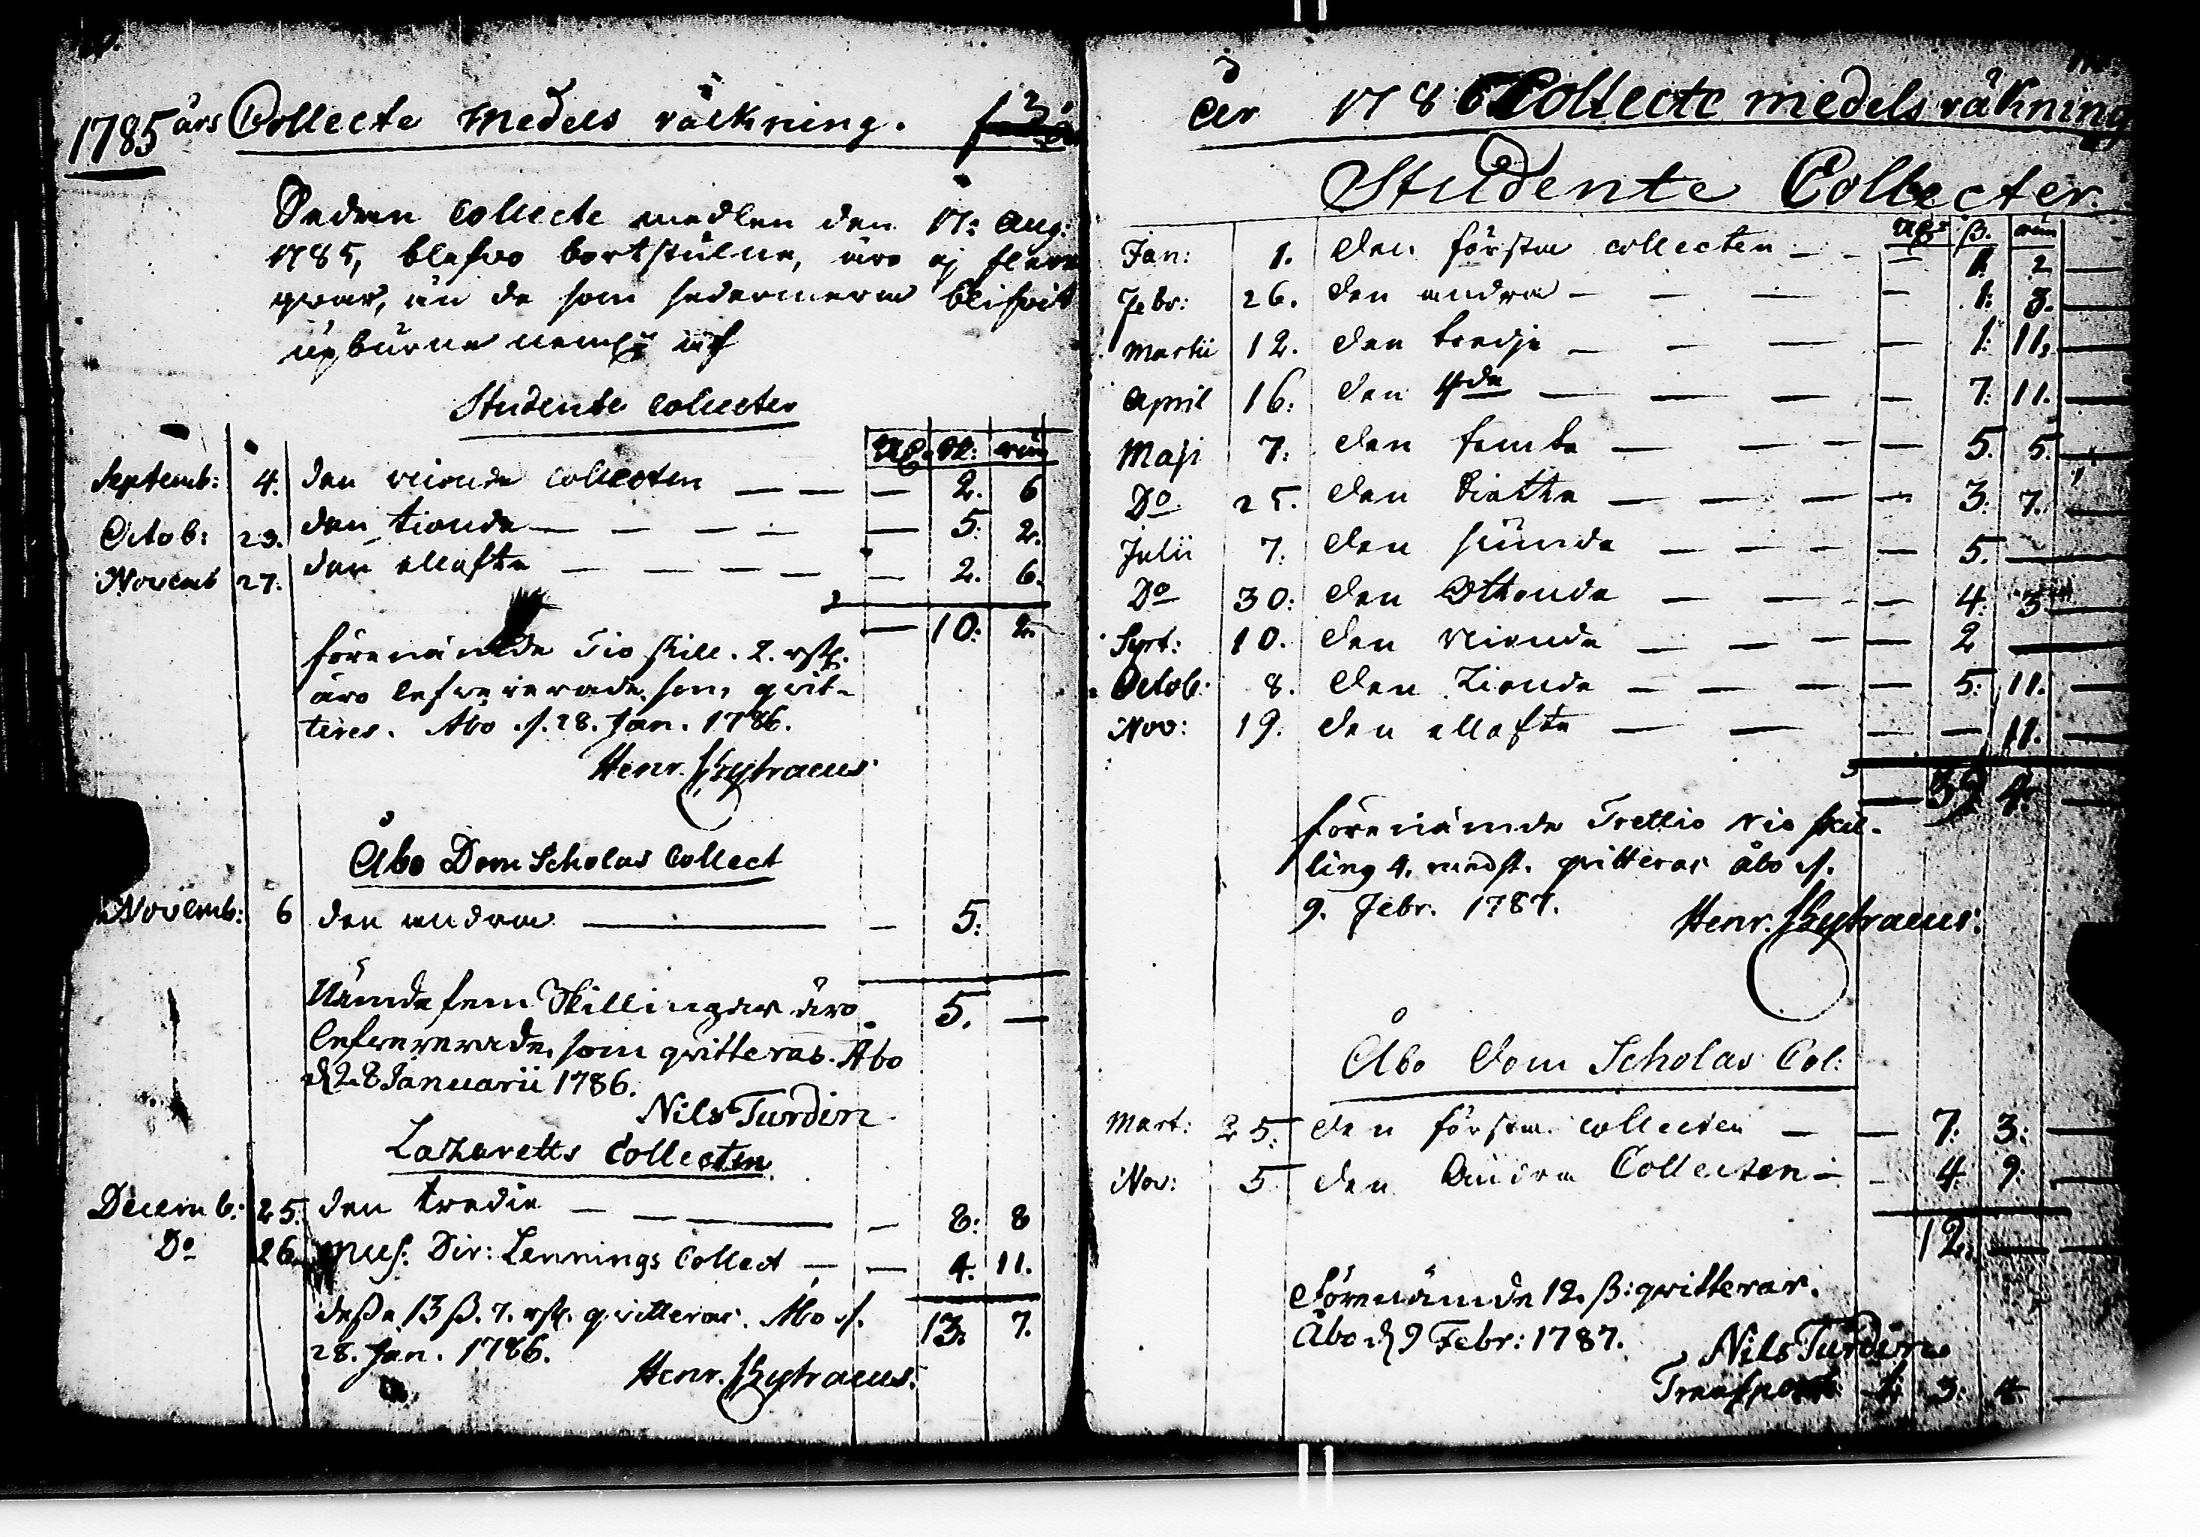 1785 års Collecte Medels räkning.
Sedan Collecte medlen den 17: Aug:
1785, blefvo bortstulne, äro ej flere
qvar, än de som sedermera blifvit
upburne neml: af
Studente Collecter
Rd. sk: run
Septemb: 4. den niionde Collecten — — — 2. 6
Octob: 23. den tionde — — — — — 5. 2.
Novemb 27. den ellofte — — — — — 2. 6.
— 10: 2.
förenämnde Tio skill. 2. rst.
äro lefvererade, som qvit-
teres. Åbo d. 28. Jan. 1786.
Henr. Skytraeus.
Åbo Dom Scholas Collect
Novemb: 6 den andra — — 5:
5. —
Nämde fem Skillingar äro
lefvererade, som qvitteras. Åbo
d 28 Januarii 1786.
Nils Turdin
Lazaretts Collecten
Decemb: 25. den tredie — — — — 8: 8
Do 26. Mus. Dir: Lennings Collect — — 4. 11.
13. 7.
dessa 13 ß. 7. rst. qvitteras. Åbo d.
28. Jan. 1786.
Henr. Skytraeus.
År 1786 Collecte medels räkning
Studente Collecter.
Rd ß. run
Jan: 1. den första collecten — — — 1: 2 —
Febr: 26. den andra — — — — 1: 3. —
Martii 12. den tredje — — — — 1: 11. —
April 16: den 4de — — — — 7: 11. —
Maji 7: den femte — — — — 5. 5. —
Do 25. den Siette — — — — 3. 7. —
Julii 7: den siunde — — — — 5. —
Do 30: den Ottonde — — — 4: 3 —
Sept: 10. den Nionde — — — — 2 —
Octob: 8. den Tionde — — — — 5: 11. —
Nov: 19. den ellofte — — — — 11. —
— 39 4. —
förenämde Trettio Nio skil-
ling 4. rundst. qvitteras Åbo d.
9. Febr. 1787.
Henr. Skytraeus.
Åbo Dom Scholas Col:
Mart: 25: den första collecten — — 7: 3: —
Nov: 5 den Andra Collecten — — 4 9: —
12. — —
Förenämde 12. ß: qvitteras.
Åbo d 9 Febr: 1787.
Nils Turdin
Transport: 1: 3: 4 —